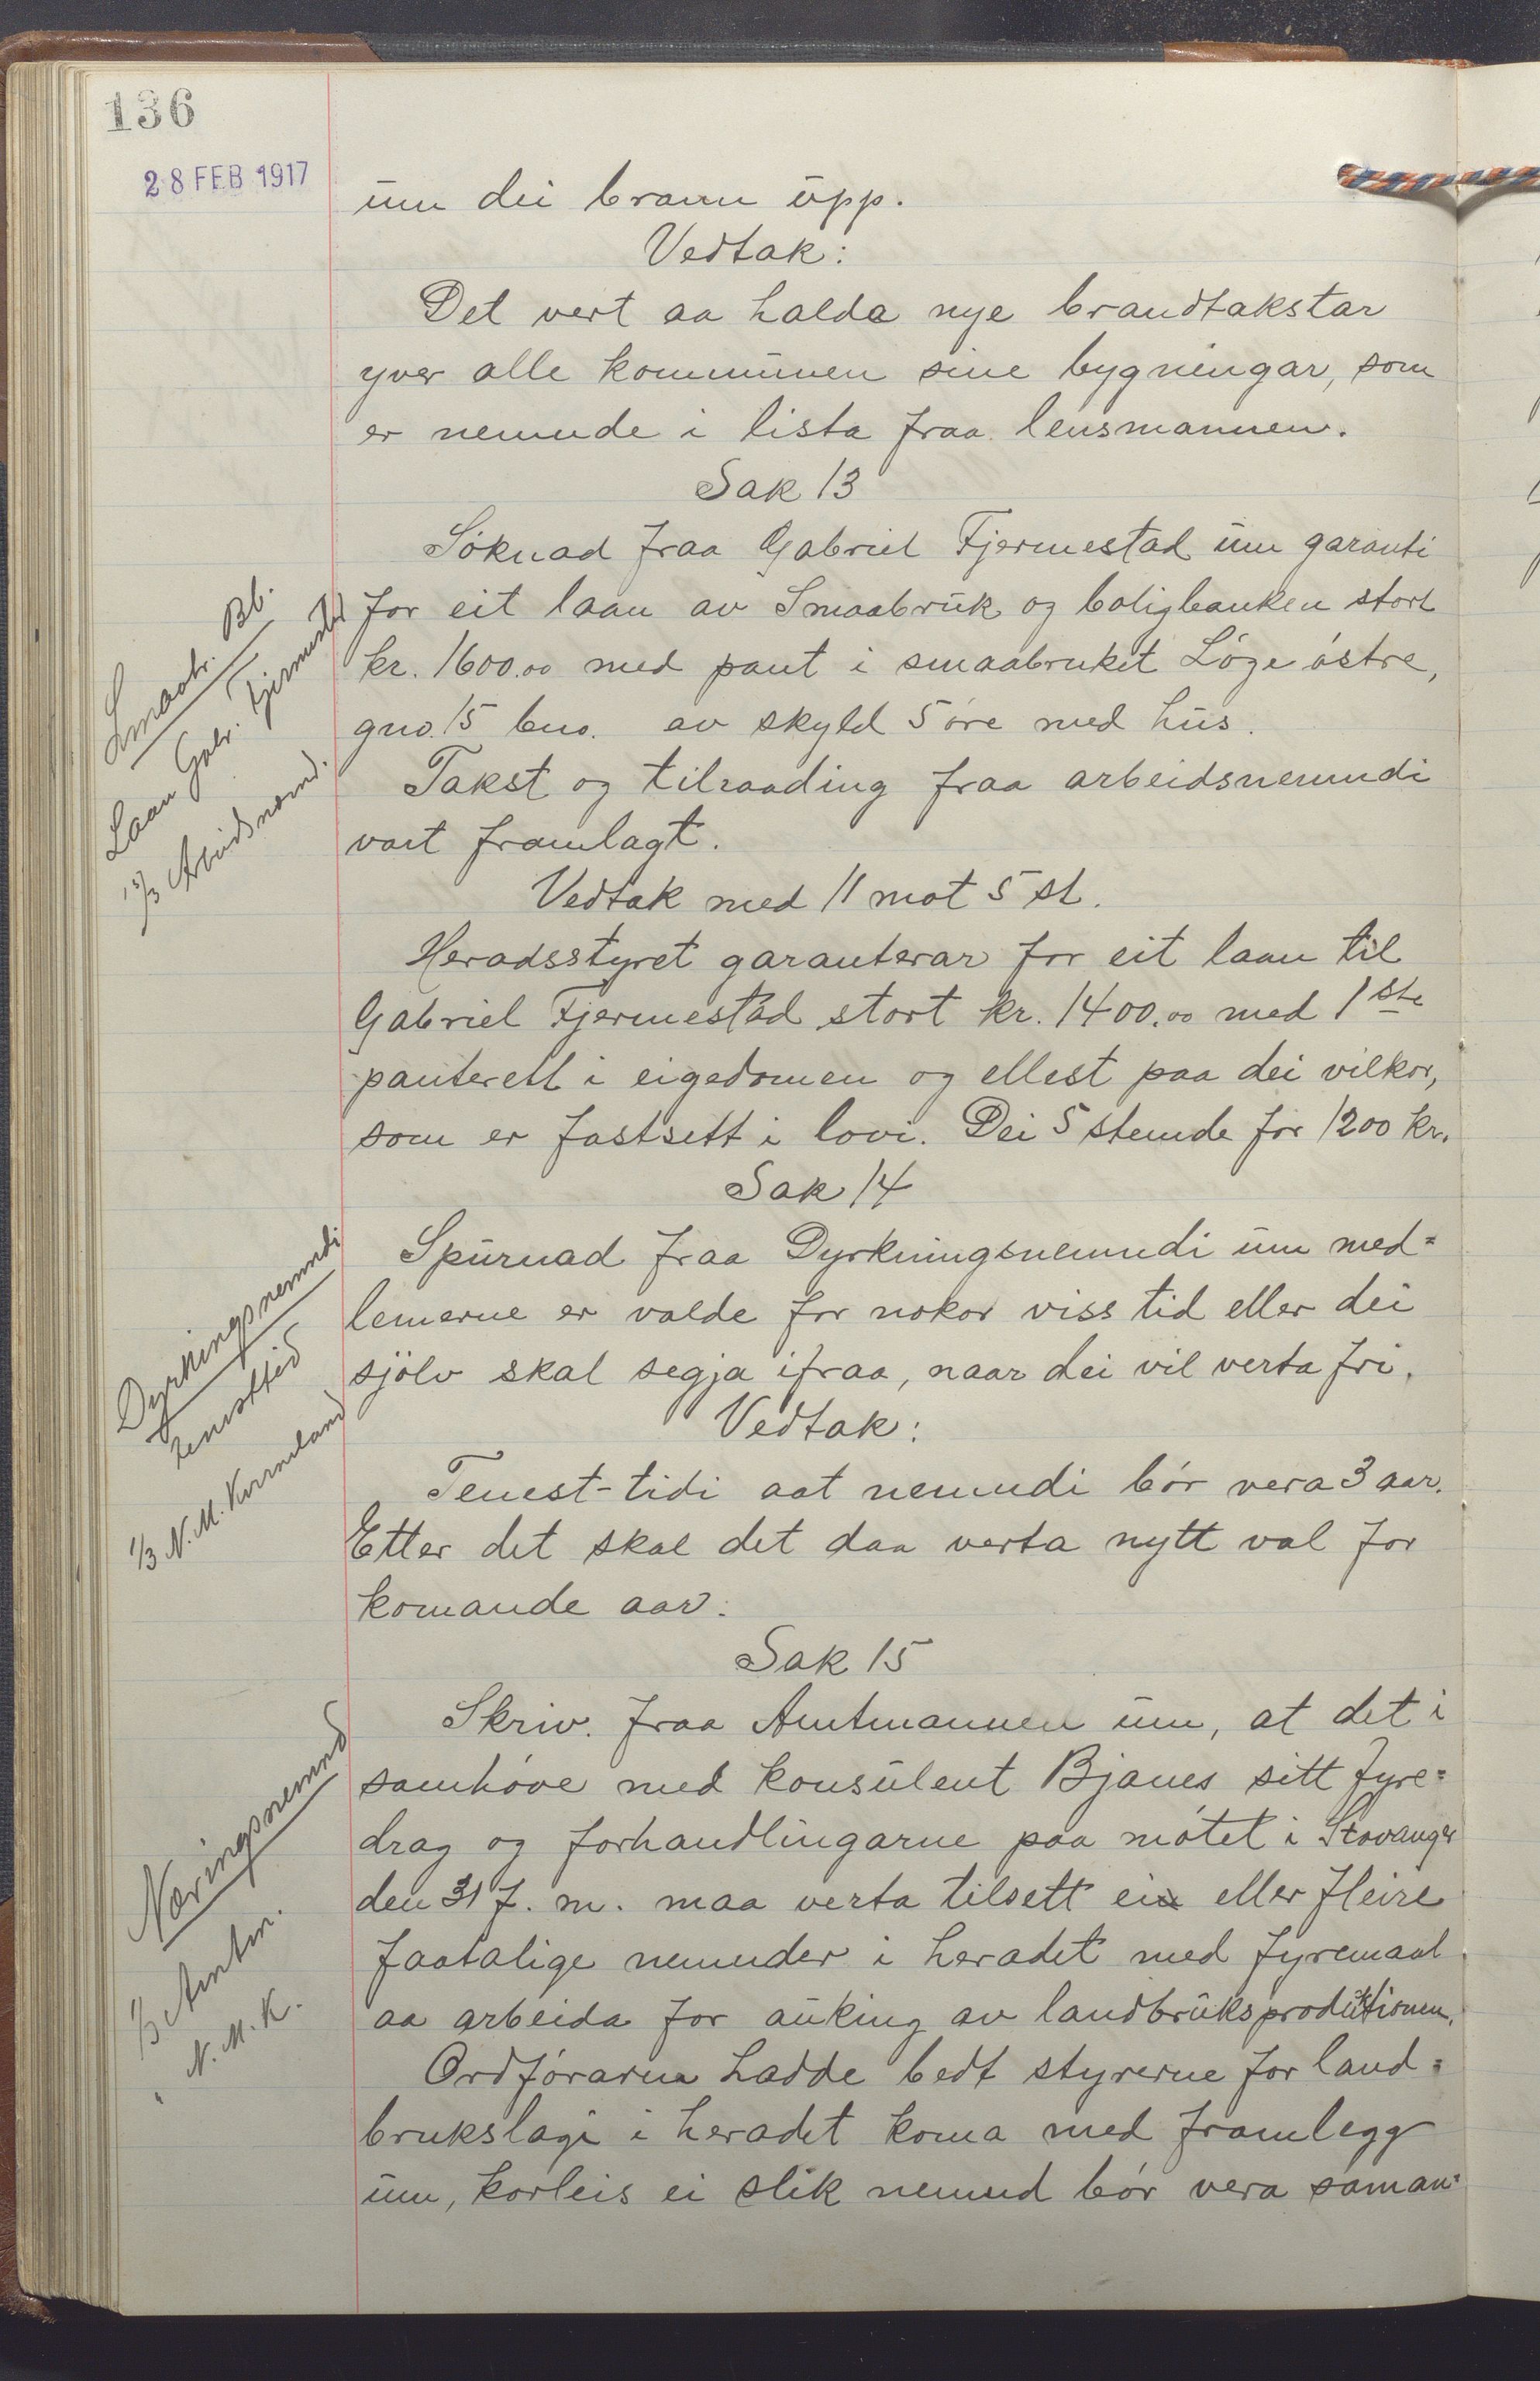 136
28 FEB 1917
um dei brann upp.
Vedtak:
Det vert aa halda nye brandtakstar
yver alle kommunen sine bygningar, som
er nemnde i lista fraa lensmannen.
Sak 13
Smaabr. Bb.
Laan Gabr. Fjermestad
Arbeidsnemd.
Söknad fraa Gabriel Fjermestad um garanti
for eit laan av Smaabruk og boligbanken stort
kr. 1600.00 med pant i smaabruket Löge östre,
gno. 15 bno. av skyld 5 öre med hus.
Takst og tilraading fraa arbeidsnemndi
vart framlagt.
Vedtak med 11 mot 5 st.
Heradsstyret garanterar for eit laan til
Gabriel Fjermestad stort kr. 1400.00 med 1ste
panterett i eigedomen og ellest paa dei vilkor,
som er fastsett i lovi. Dei 5 stemde for 1200 kr.
Sak 14
Dyrkingsnemndi
tenesttid
1/3 N. M. Kverneland
Spurnad fraa Dyrkningsnemndi um med=
lemerne er valde for nokor viss tid eller dei
sjölv skal segja ifraa, naar dei vil verta fri.
Vedtak:
Tenest-tidi aat nemndi bör vera 3 aar.
Etter det skal det daa verta nytt val for
komande aar.
Sak 15
Næringsnemnd
1/3 Amtm.
" N. M. K.
Skriv. fraa Amtmannen um, at det i
samhöve med konsulent Bjanes sitt fyre=
drag og forhandlingarne paa mötet i Stavanger
den 31 f. m. maa verta tilsett ei eller fleire
faatalige nemnder i heradet med fyremaal
aa arbeida for auking av landbruksproduktionen.
Ordföraren hadde bedt styrerne for land=
brukslagi i heradet koma med framlegg
um, korleis ei slik nemnd bör vera saman=